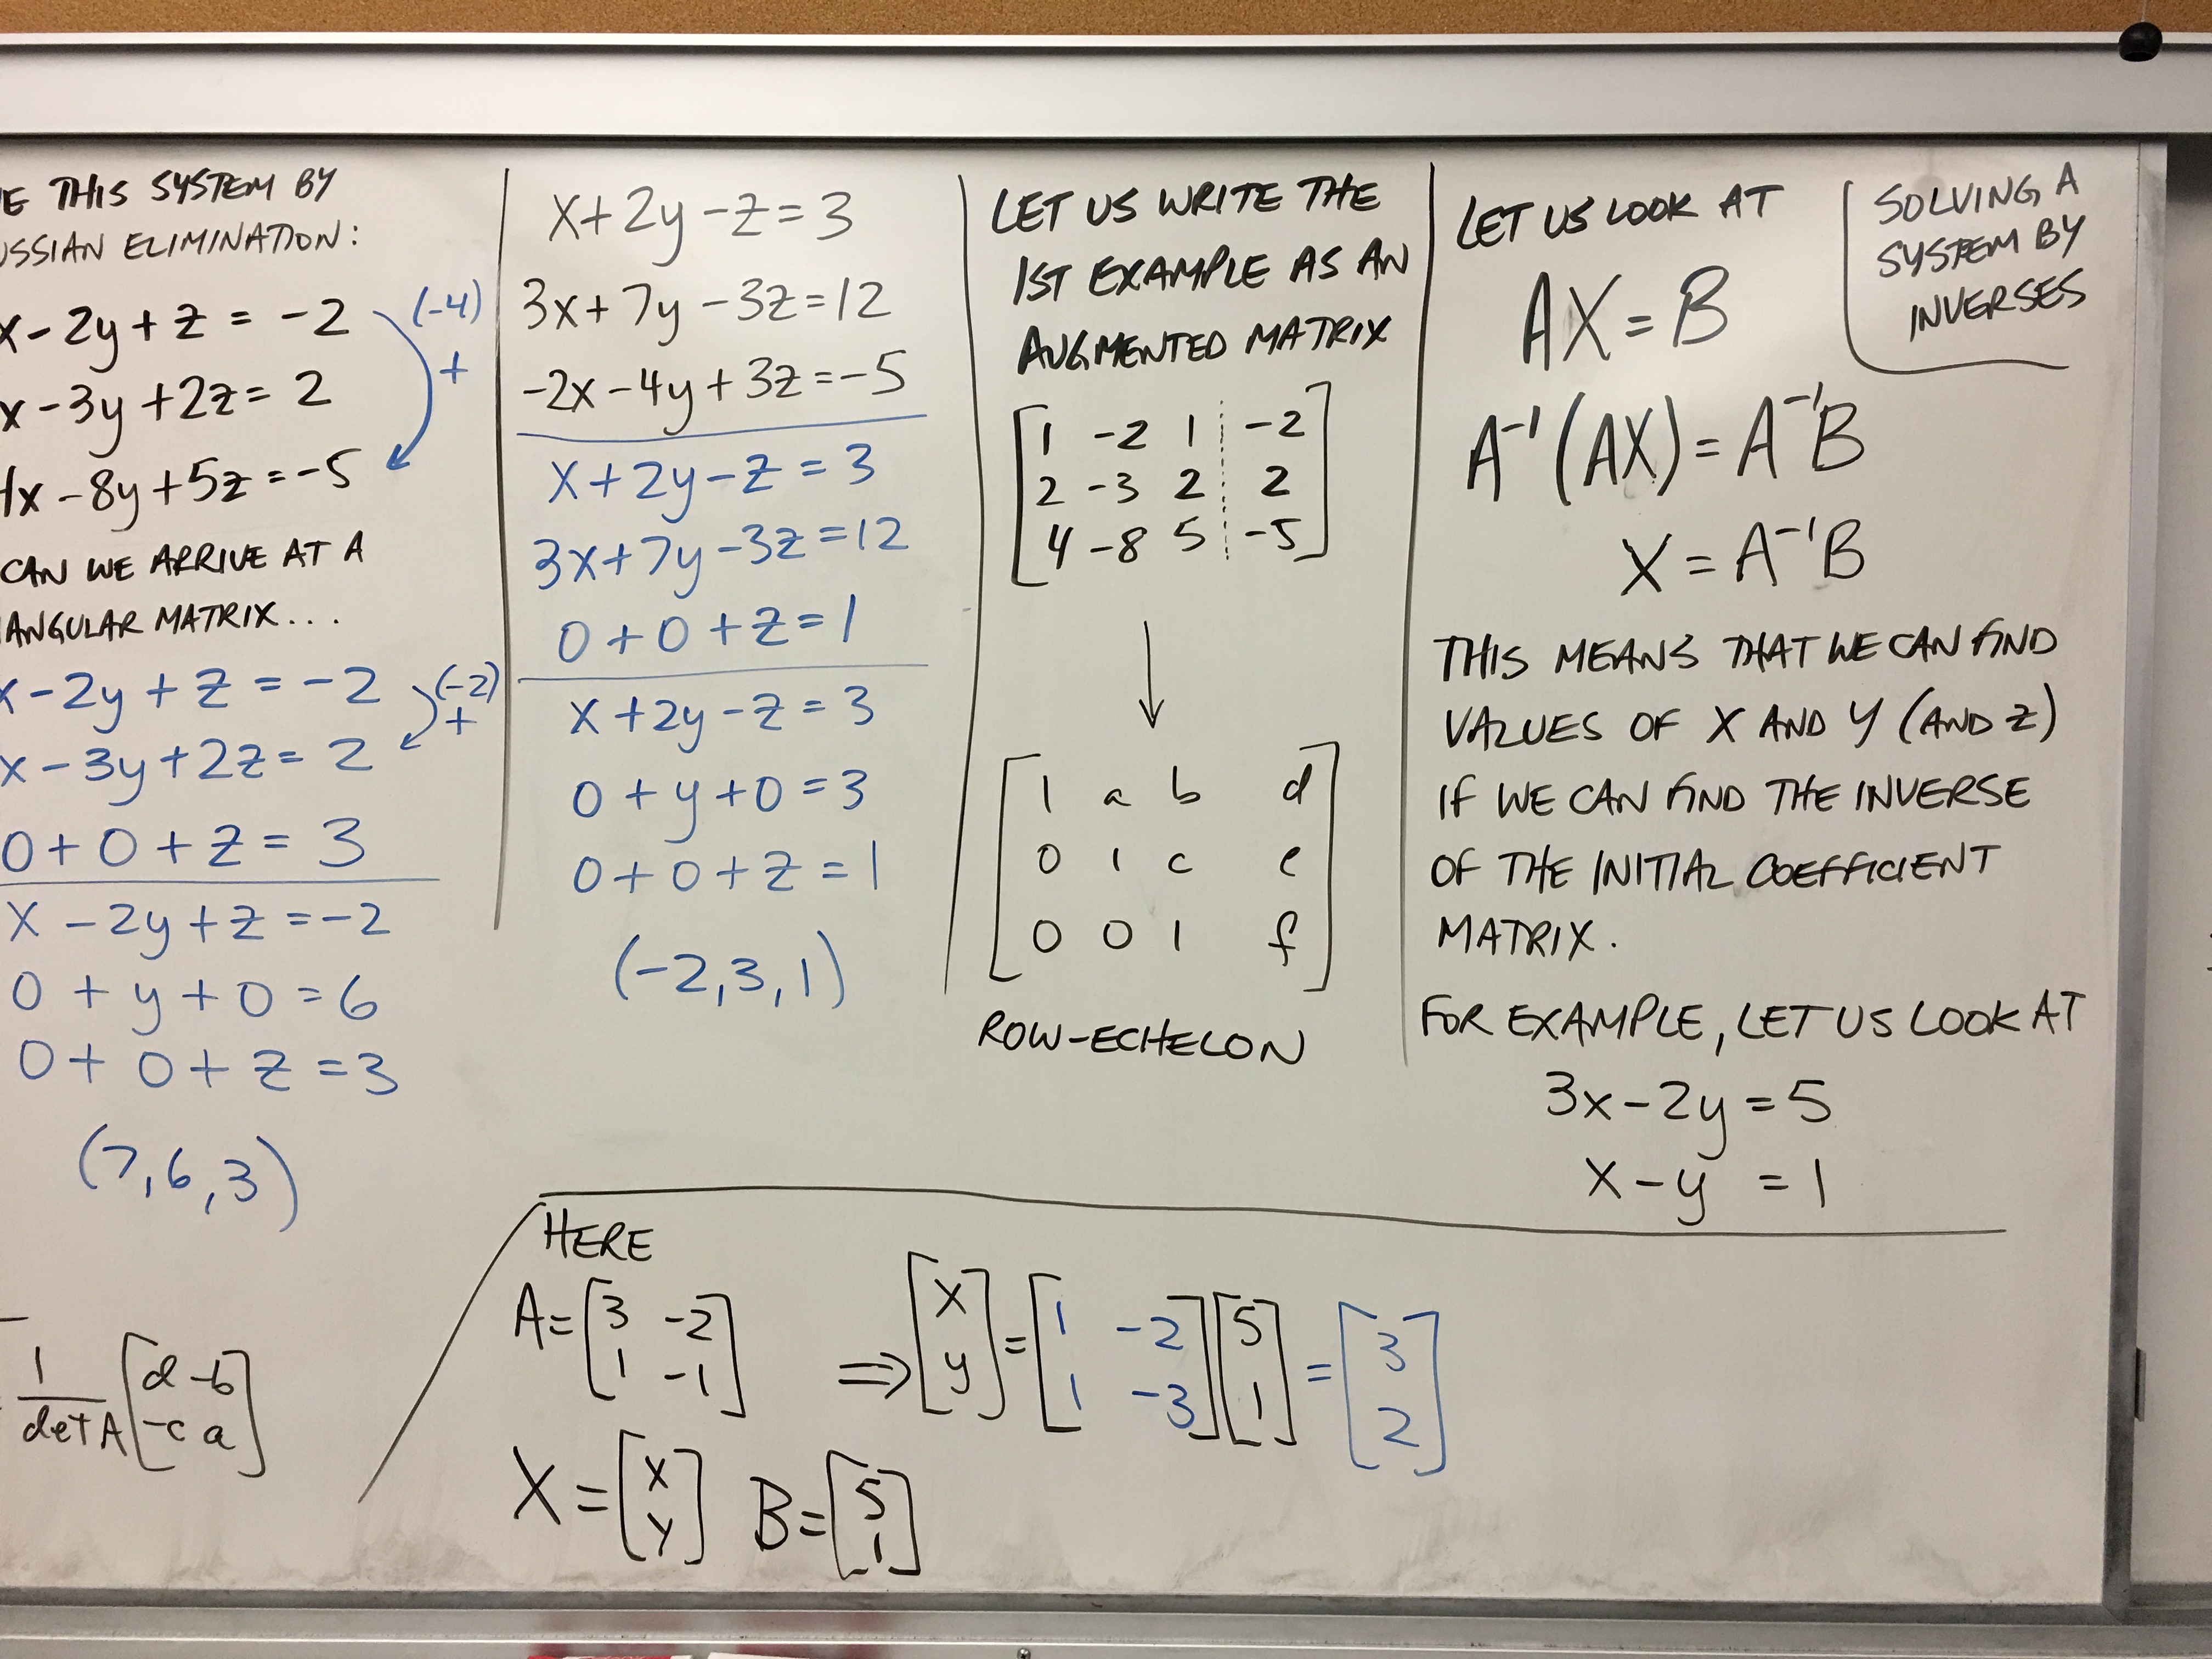 E THIS SYSTEM BY
USSIAN ELIMINATION:
x-2y+z = -2 (-4)
+
x-3y+2z= 2
4x-8y+5z=-5
CAN WE ARRIVE AT A
ANGULAR MATRIX...
x-2y+z = -2 (-2)
+
x-3y+2z= 2
0+0+z= 3
x-2y+z=-2
0+y+0=6
0+0+z=3
(7,6,3)
1
det A
d -b
-c a
x+2y-z=3
3x+7y-3z=12
-2x-4y+3z=-5
x+2y-z=3
3x+7y-3z=12
0+0+z=1
x+2y-z=3
0+y+0=3
0+0+z=1
(-2,3,1)
LET US WRITE THE
1ST EXAMPLE AS AN
AUGMENTED MATRIX
1 -2 1 -2
2 -3 2 2
4 -8 5 -5
1 a b d
0 1 c e
0 0 1 f
ROW-ECHELON
LET US LOOK AT
SOLVING A
SYSTEM BY
INVERSES
AX=B
A⁻¹(AX)=A⁻¹B
X=A⁻¹B
THIS MEANS THAT WE CAN FIND
VALUES OF X AND Y (AND Z)
IF WE CAN FIND THE INVERSE
OF THE INITIAL COEFFICIENT
MATRIX.
FOR EXAMPLE, LET US LOOK AT
3x-2y=5
x-y =1
HERE
A=[3 -2
1 -1]
⇒[x
y]=[1 -2
1 -3][5
1]=[3
2]
X=[x
y]
B=[5
1]